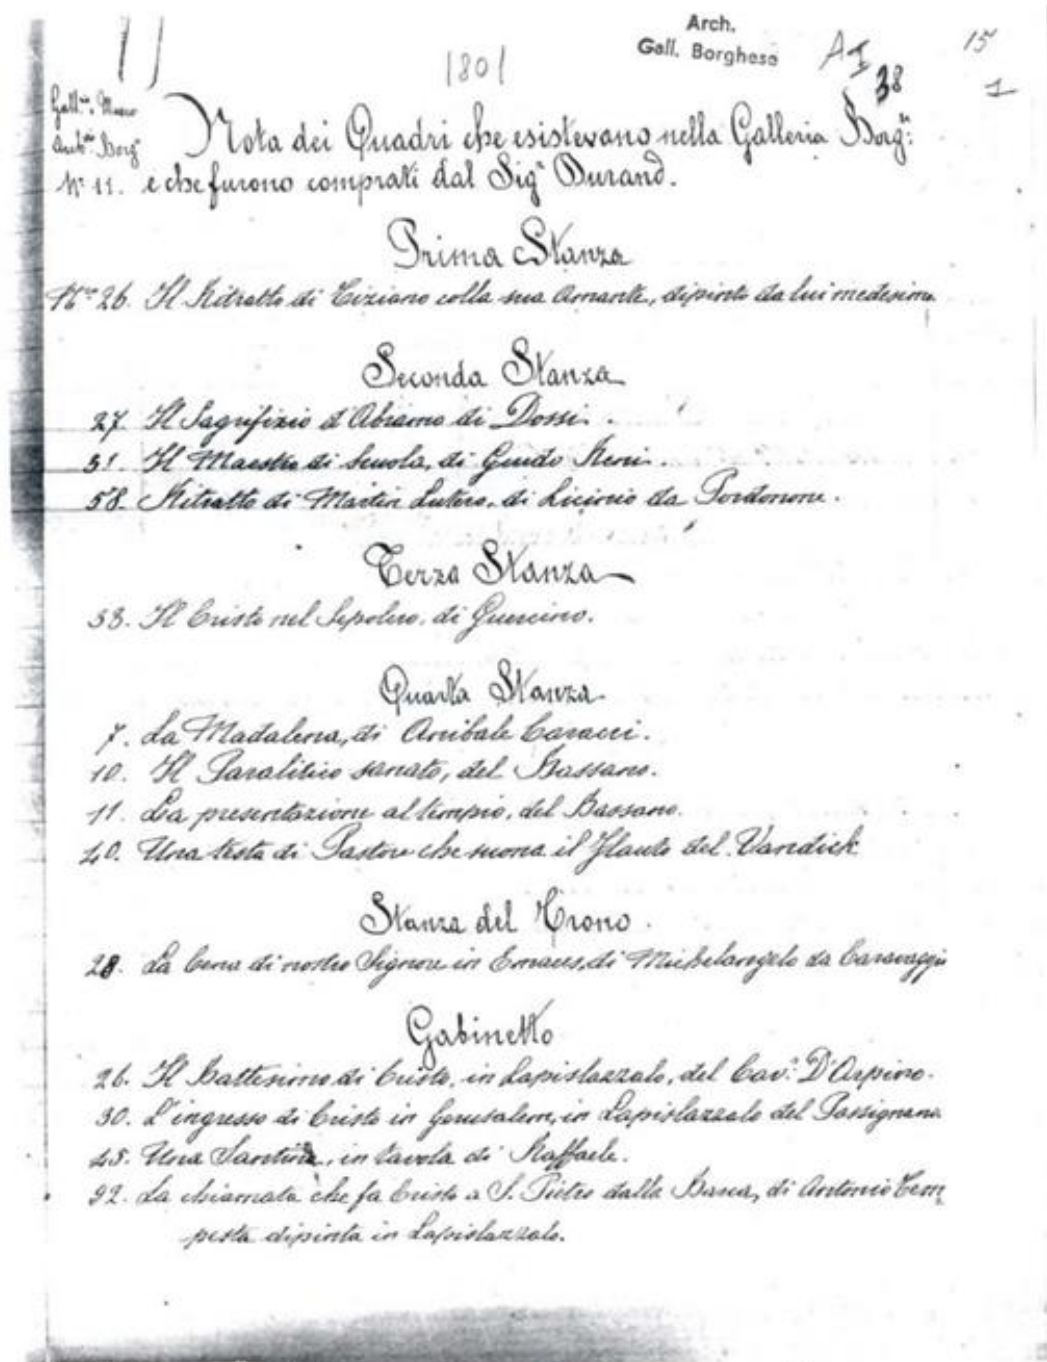 Arch.
Gall. Borghese
1801
AI
38
15
1
Gall.ia Museo
Nota dei Quadri che esistevano nella Galleria Borg.
Borg.
N° 11. e che furono comprati dal Sig.r Durand.
Prima Stanza
N.ro 26. Il Ritratto di Tiziano colla sua Amante, dipinto da lui medesimo
Seconda Stanza
27. Il Sagrifizio d'Abramo di Dossi.
31. Il Maestro di Scuola, di Guido Reni.
58. Ritratto di Martin Lutero, di Licinio da Pordonone.
Terza Stanza
53. Il Cristo nel Sepolcro, di Guercino.
Quarta Stanza
7. La Madalena, di Annibale Caracci.
10. Il Paralitico sanato, del Bassano.
11. La presentazione al tempio, del Bassano.
40. Una testa di Pastore che suona il Flauto del Vandick
Stanza del Trono.
28. La Cena di nostro Signore in Emaus, di Michelangelo da Caravaggio
Gabinetto
26. Il Battesimo di Cristo, in Lapislazzalo, del Cav.e D'Arpino.
30. L'ingresso di Cristo in Gerusalem, in Lapislazzalo del Passignano
45. Una Santina, in tavola di Raffaele.
92. La chiamata che fa Cristo a S. Pietro dalla Barca, di Antonio Tem
pesta dipinta in Lapislazzalo.